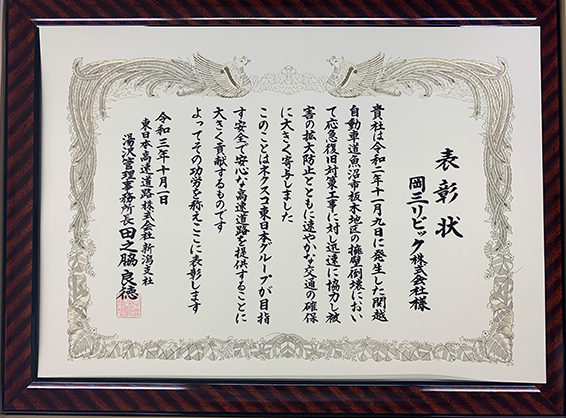 表彰状
岡三リビック株式会社様
貴社は令和二年十一月九日に発生した関越
自動車道魚沼市板木地区の擁壁倒壊におい
て応急復旧対策工事に対し迅速に協力し被
害の拡大防止とともに速やかな交通の確保
に大きく寄与しました
このことはネクスコ東日本グループが目指
す安全で安心な高速道路を提供することに
大きく貢献するものです
よってその功労を称えここに表彰します
令和三年十月一日
東日本高速道路株式会社 新潟支社
湯沢管理事務所長 田之脇 良徳